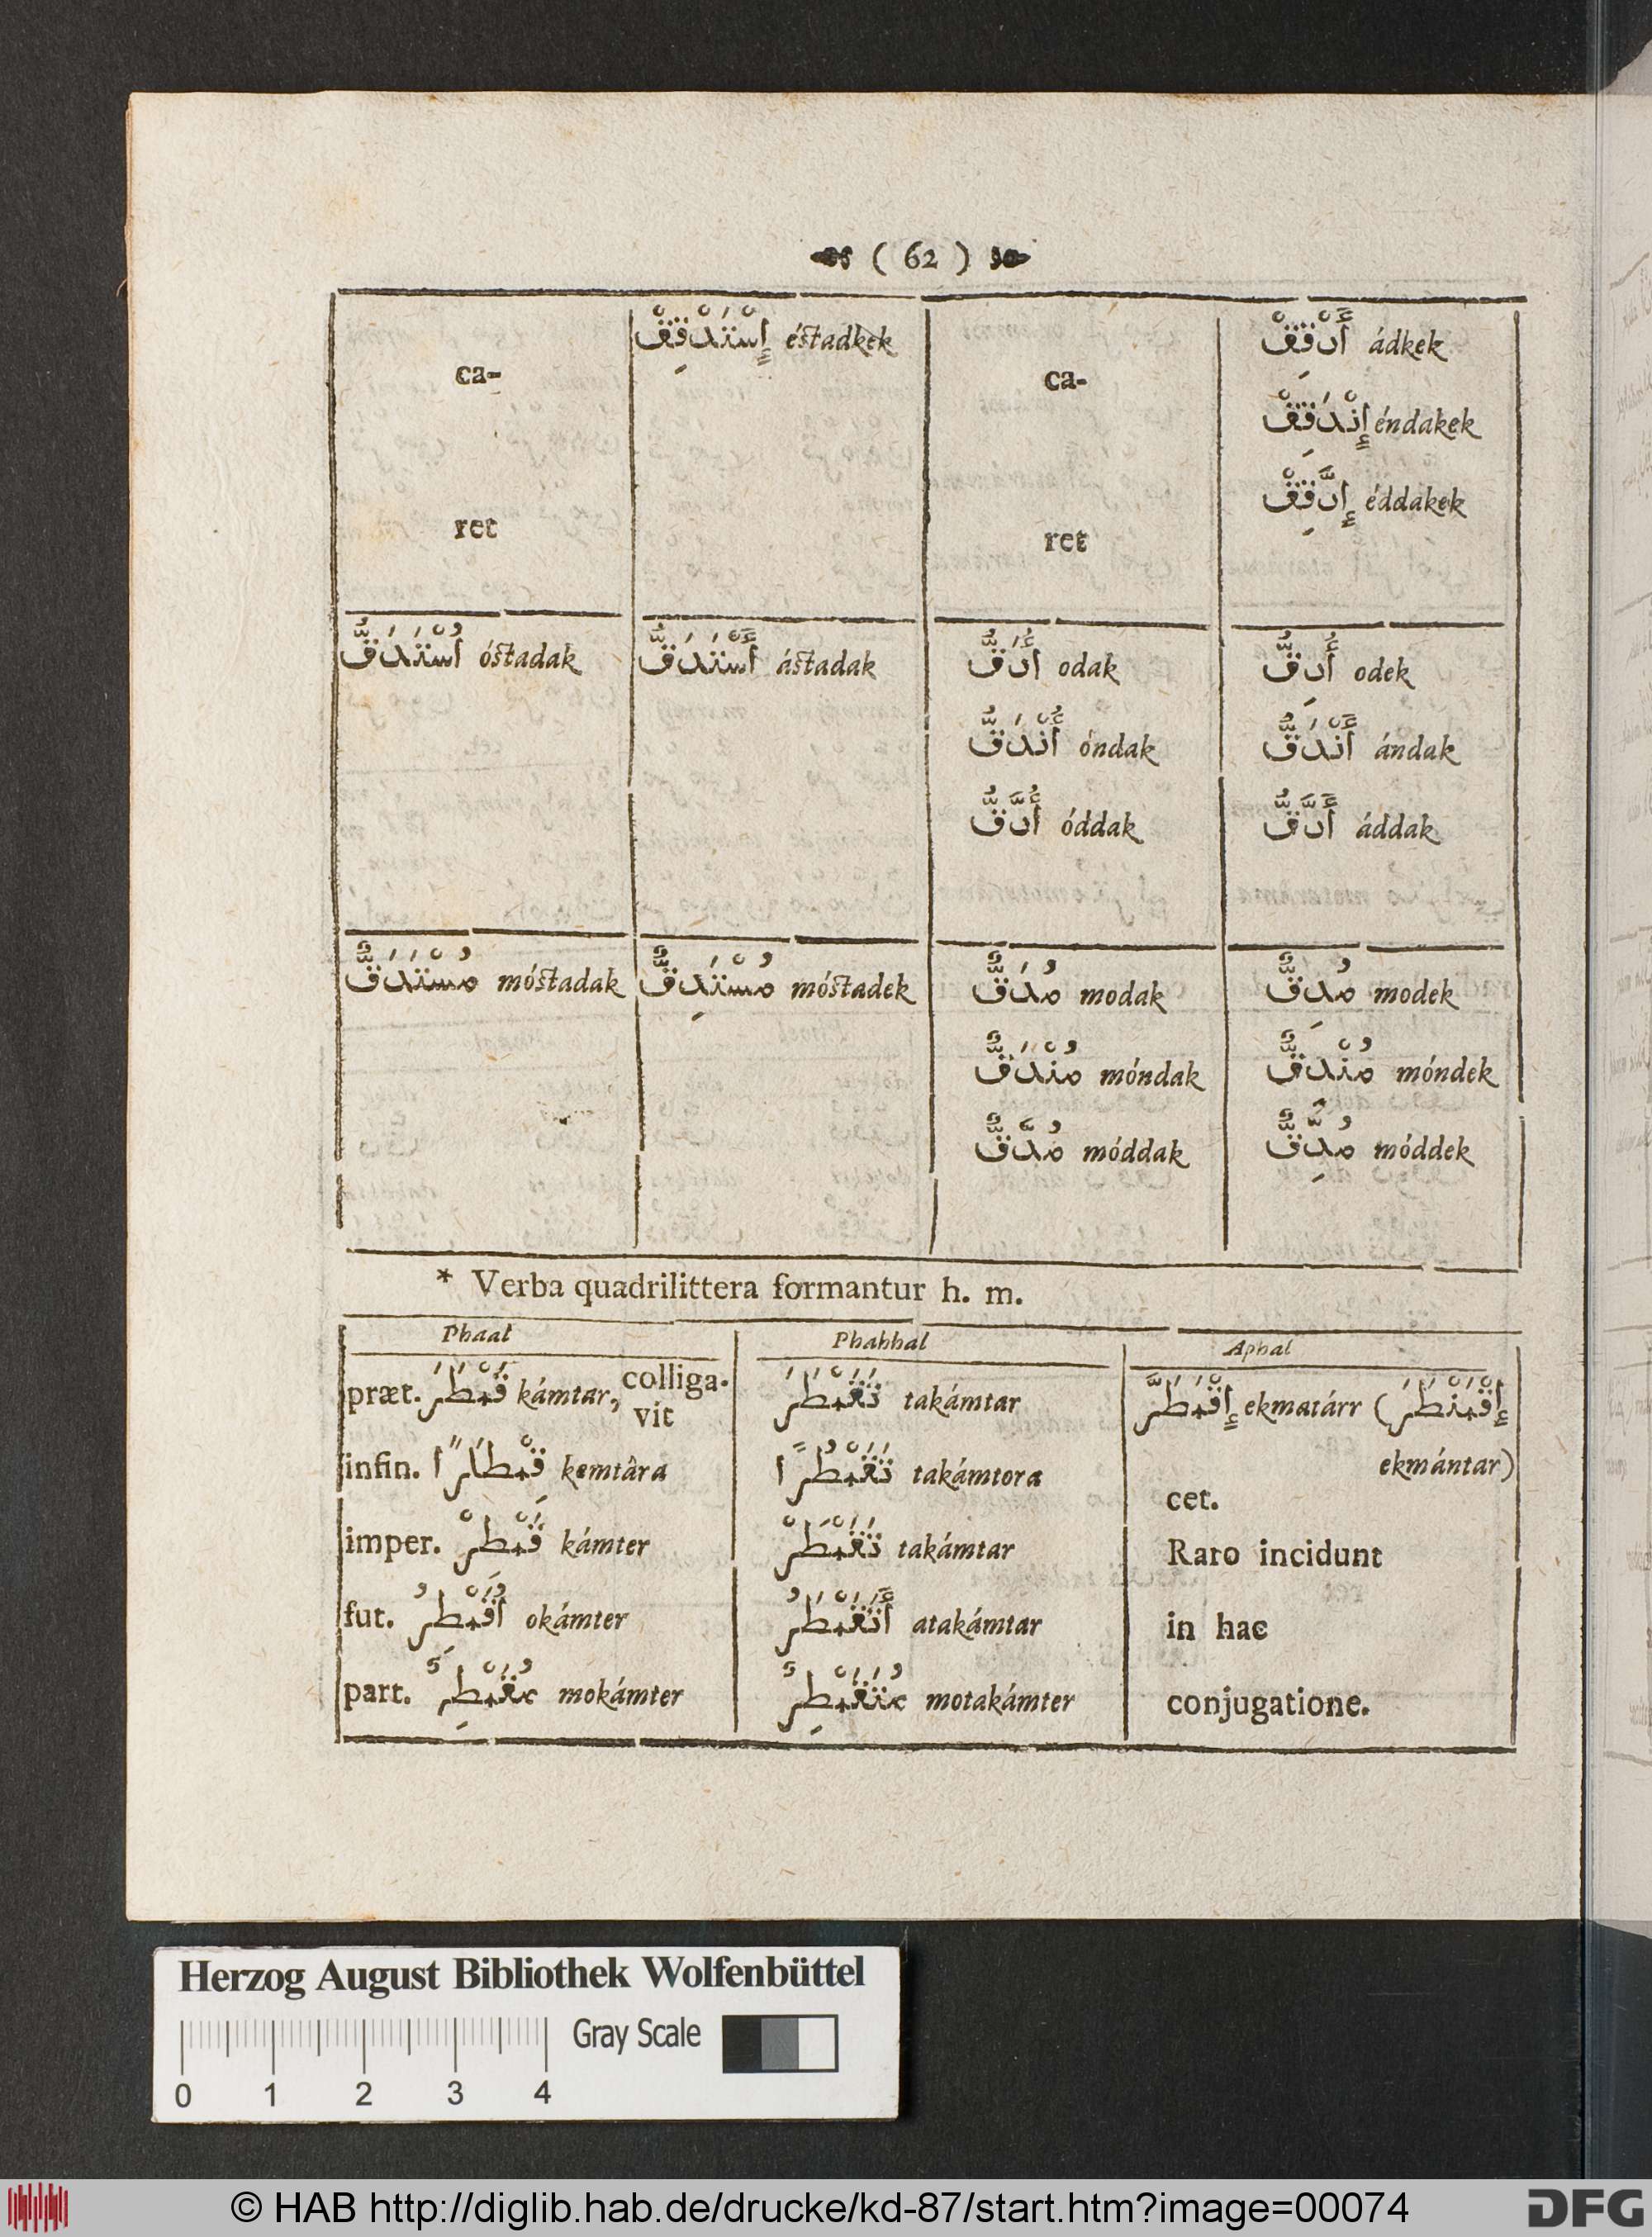 ( 62 )
إِسْتَدْقِقْ éstadkek أَدْقِقْ ádkek
ca- ca-
إِنْدَقِقْ éndakek
إِدَّقِقْ éddakek
ret ret
أُسْتَدَقُّ óstadak أَسْتَدَقُّ ástadak أُدَقُّ odak أُدِقُّ odek
أُنْدَقُّ óndak أَنْدَقُّ ándak
أُدَّقُّ óddak أَدَّقُّ áddak
مُسْتَدَقٌّ móstadak مُسْتَدِقٌّ móstadek مُدَقٌّ modak مُدِقٌّ modek
مُنْدَقٌّ móndak مُنْدَقٌّ móndek
مُدَّقٌّ móddak مُدِّقٌّ móddek
* Verba quadrilittera formantur h. m.
Phaal Phahhal Aphal
præt. قَمْطَرَ kámtar, colliga-vit تَقَمْطَرَ takámtar إِقْمَطَرَّ ekmatárr (إِقْمَنْطَرَ
infin. قِمْطَارًا kemtâra تَقَمْطُرًا takámtora ekmántar)
cet.
imper. قَمْطِرْ kámter تَقَمْطَرْ takámtar Raro incidunt
fut. أُقَمْطِرُ okámter أَتَقَمْطَرُ atakámtar in hac
part. مُقَمْطِرٌ mokámter مُتَقَمْطِرٌ motakámter conjugatione.
Herzog August Bibliothek Wolfenbüttel
Gray Scale
0 1 2 3 4
© HAB http://diglib.hab.de/drucke/kd-87/start.htm?image=00074
DFG